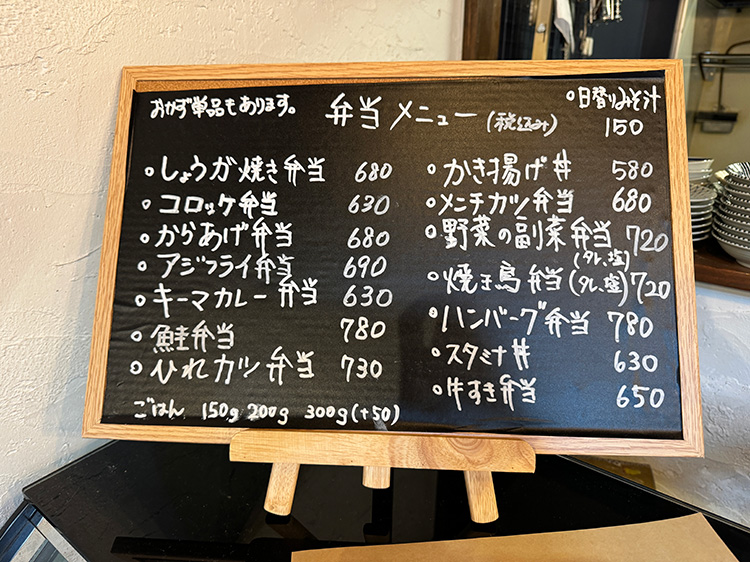 おかず単品もあります。
弁当メニュー(税込み)
○日替りみそ汁
150
○しょうが焼き弁当 680
○コロッケ弁当 630
○からあげ弁当 680
○アジフライ弁当 690
○キーマカレー弁当 630
○鮭弁当 780
○ひれカツ弁当 730
ごはん 150g 200g 300g(+50)
○かき揚げ丼 580
○メンチカツ弁当 680
○野菜の副菜弁当 720
(タレ、塩)
○焼き鳥弁当(タレ、塩)720
○ハンバーグ弁当 780
○スタミナ丼 630
○牛すき弁当 650